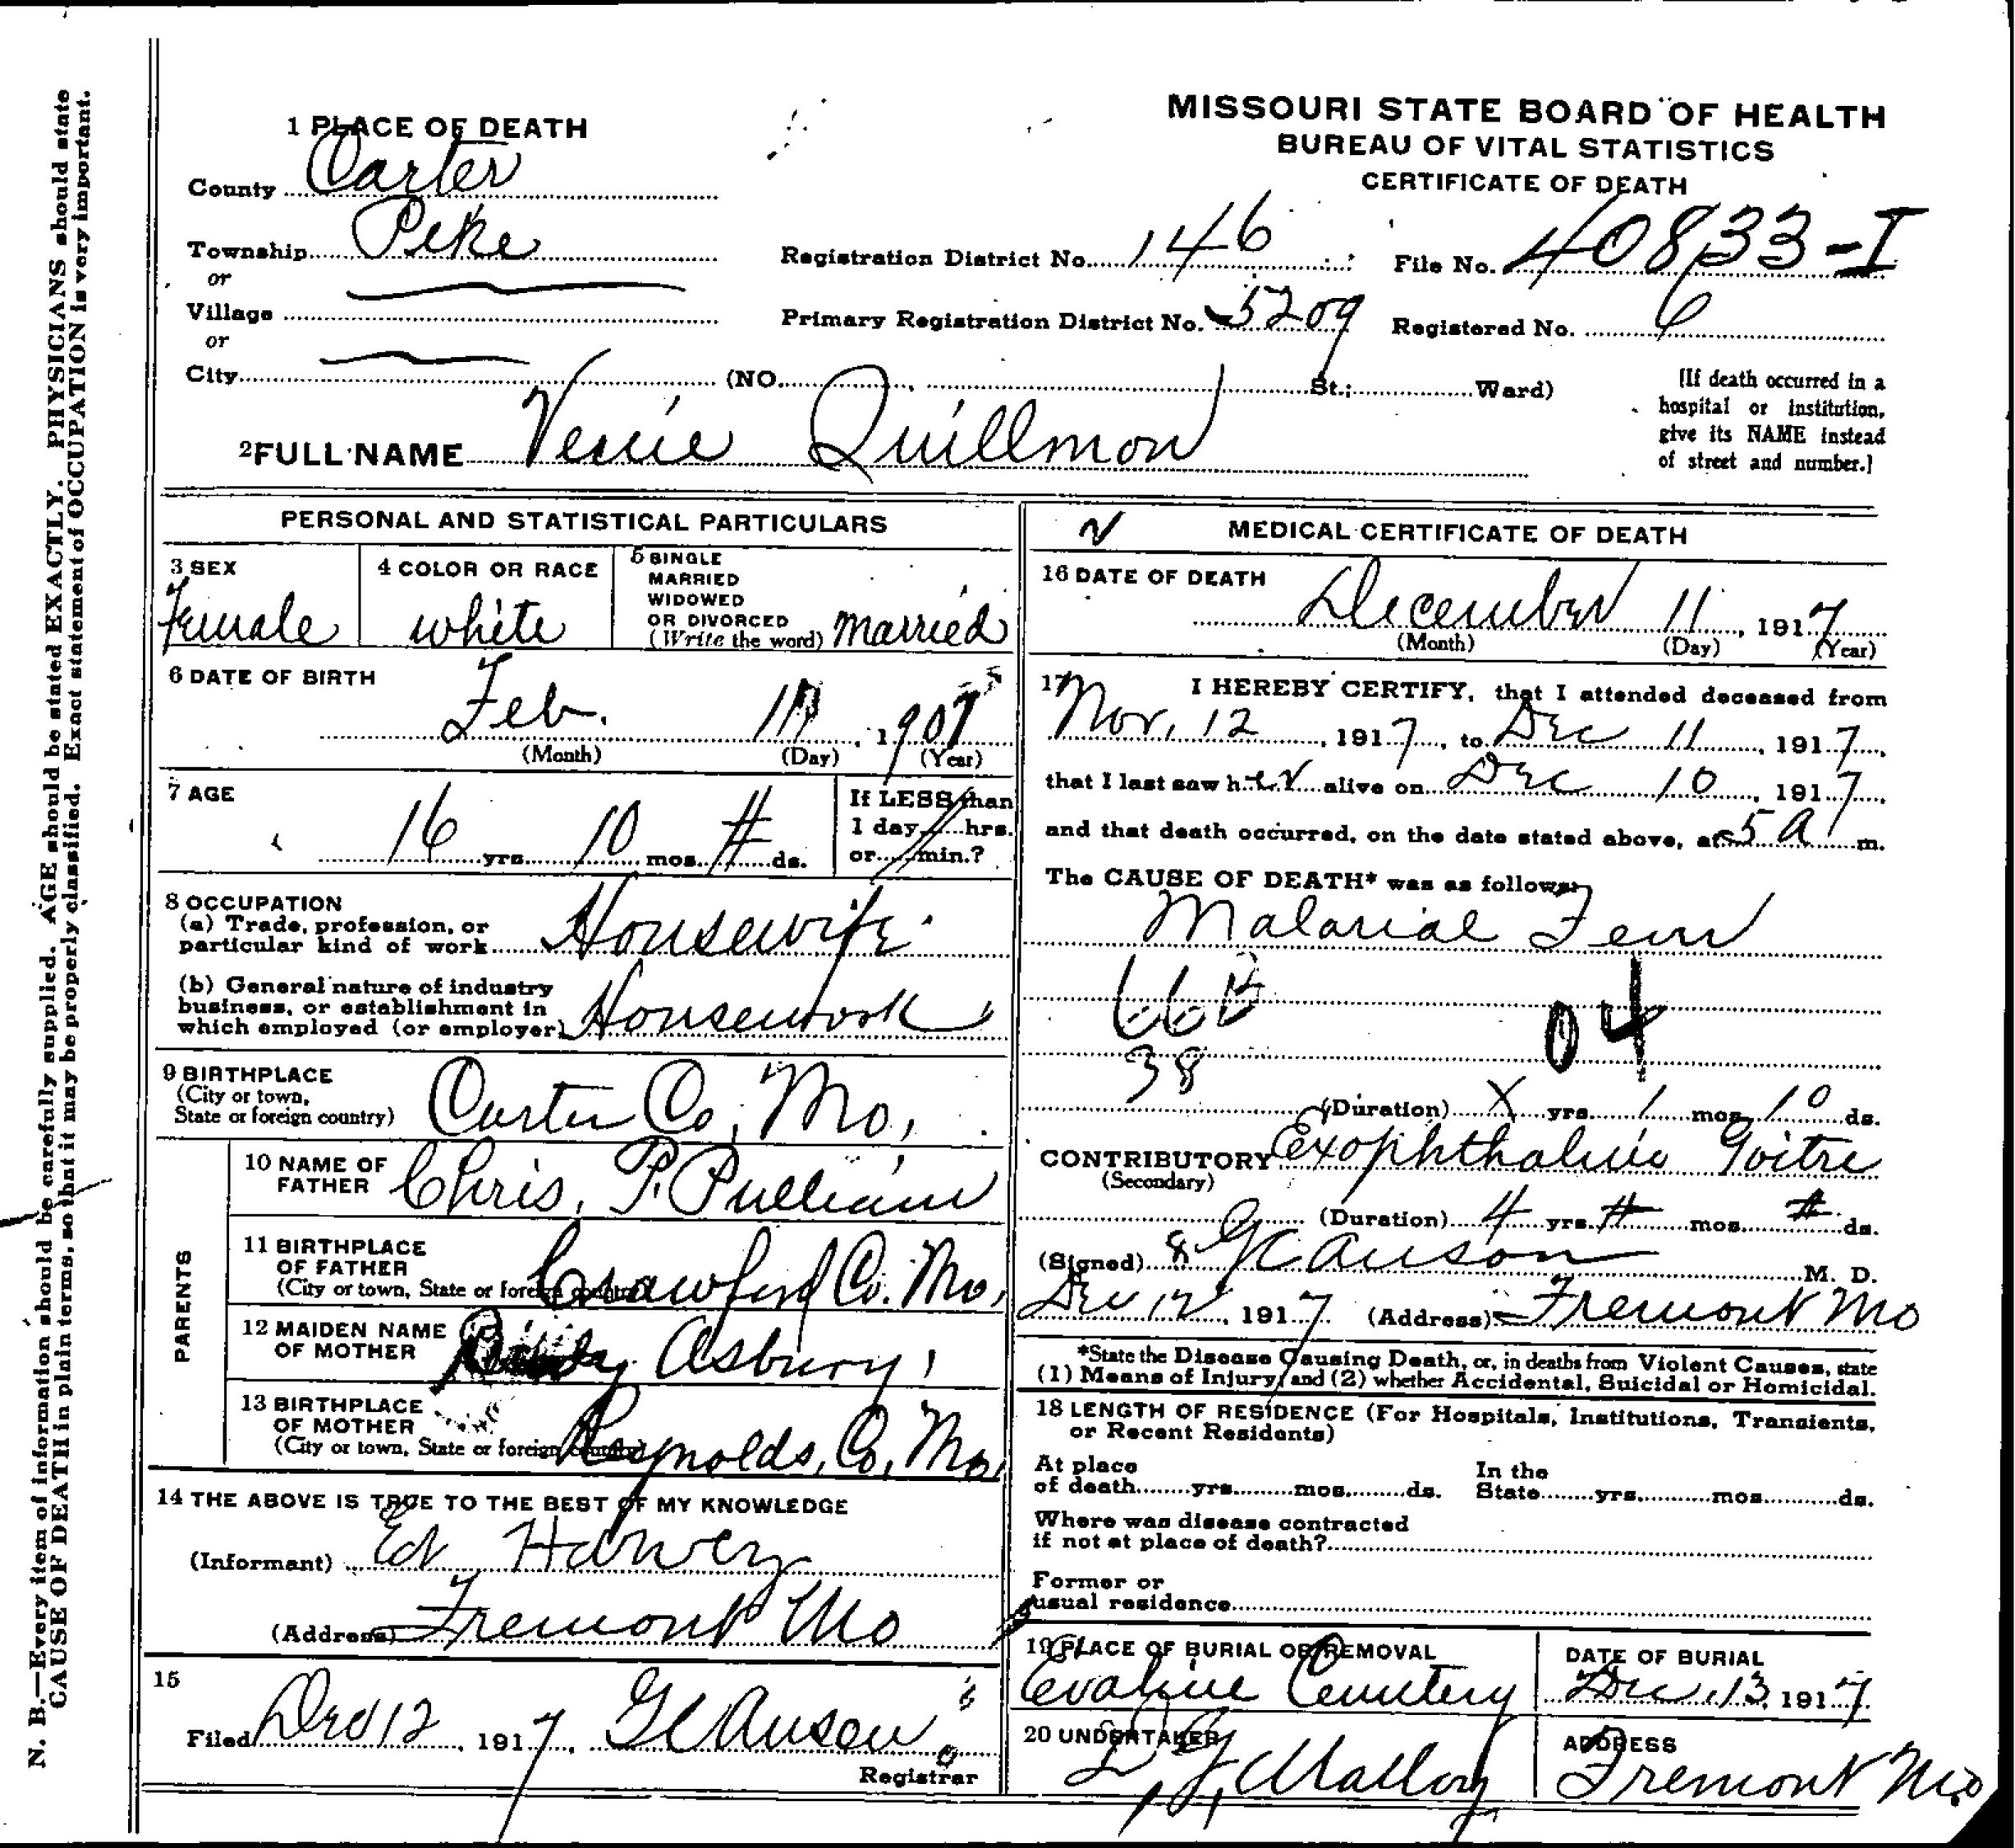 MISSOURI STATE BOARD OF HEALTH
BUREAU OF VITAL STATISTICS
CERTIFICATE OF DEATH
1 PLACE OF DEATH
County Carter
Township Pike
or
Village
or
City (NO. St.; Ward)
Registration District No. 146 File No. 40833-I
Primary Registration District No. 5209 Registered No. 6
[If death occurred in a
hospital or institution,
give its NAME instead
of street and number.]
2 FULL NAME Quillmon
PERSONAL AND STATISTICAL PARTICULARS
3 SEX
Female
4 COLOR OR RACE
white
5 SINGLE
MARRIED
WIDOWED
OR DIVORCED
(Write the word) married
6 DATE OF BIRTH
Feb. 190
(Month) (Day) (Year)
7 AGE
16 yrs. 10 mos. # ds.
If LESS than
1 day hrs.
or min.?
8 OCCUPATION
(a) Trade, profession, or
particular kind of work Housewife
(b) General nature of industry
business, or establishment in
which employed (or employer) Housework
9 BIRTHPLACE
(City or town,
State or foreign country) Carter Co, Mo,
PARENTS
10 NAME OF
FATHER Chris. P. Pulliam
11 BIRTHPLACE
OF FATHER
(City or town, State or foreign country) Crawford Co. Mo,
12 MAIDEN NAME
OF MOTHER Asbury,
13 BIRTHPLACE
OF MOTHER
(City or town, State or foreign country) Reynolds, Co, Mo,
14 THE ABOVE IS TRUE TO THE BEST OF MY KNOWLEDGE
(Informant) Ed
(Address) Fremont Mo
15
Filed Dec 12, 1917, Registrar
MEDICAL CERTIFICATE OF DEATH
16 DATE OF DEATH
December 11, 1917
(Month) (Day) (Year)
17 I HEREBY CERTIFY, that I attended deceased from
Nov. 12, 1917, to Dec 11, 1917,
that I last saw her alive on Dec 10, 1917,
and that death occurred, on the date stated above, at 5 a m.
The CAUSE OF DEATH* was as follows:
Malarial Fever
66B 04
38
(Duration) X yrs. 1 mos. 10 ds.
CONTRIBUTORY Exophthalmic Goitre
(Secondary)
(Duration) 4 yrs. # mos. # ds.
(Signed) M. D.
Dec 12, 1917 (Address) Fremont Mo
*State the Disease Causing Death, or, in deaths from Violent Causes, state
(1) Means of Injury; and (2) whether Accidental, Suicidal or Homicidal.
18 LENGTH OF RESIDENCE (For Hospitals, Institutions, Transients,
or Recent Residents)
At place
of death yrs. mos. ds.
In the
State yrs. mos. ds.
Where was disease contracted
if not at place of death?
Former or
usual residence
19 PLACE OF BURIAL OR REMOVAL
Cemetery
DATE OF BURIAL
Dec, 13, 1917.
20 UNDERTAKER
Malloy
ADDRESS
Fremont Mo
N. B.—Every item of information should be carefully supplied. AGE should be stated EXACTLY. PHYSICIANS should state
CAUSE OF DEATH in plain terms, so that it may be properly classified. Exact statement of OCCUPATION is very important.